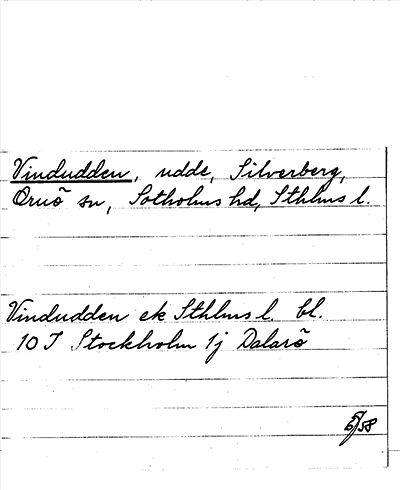 Vindudden, udde, Silverberg,
Ornö sn, Sotholms hd, Sthlms l.
Vindudden ek Sthlms l. bl.
10 I Stockholm 1j Dalarö
/58